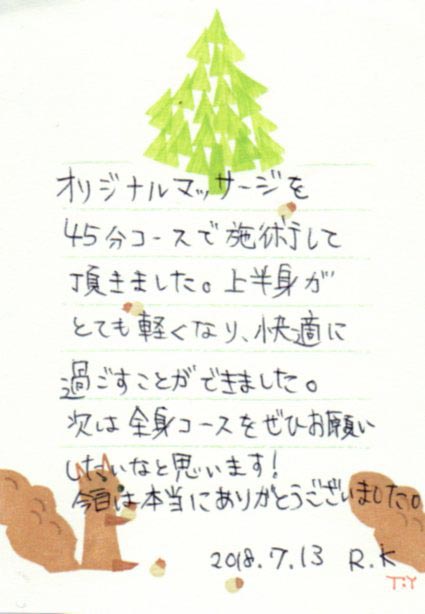 オリジナルマッサージを
45分コースで施術して
頂きました。上半身が
とても軽くなり、快適に
過ごすことができました。
次は全身コースをぜひお願い
したいなと思います!
今日は本当にありがとうございました。
2018.7.13 R.K
T.Y